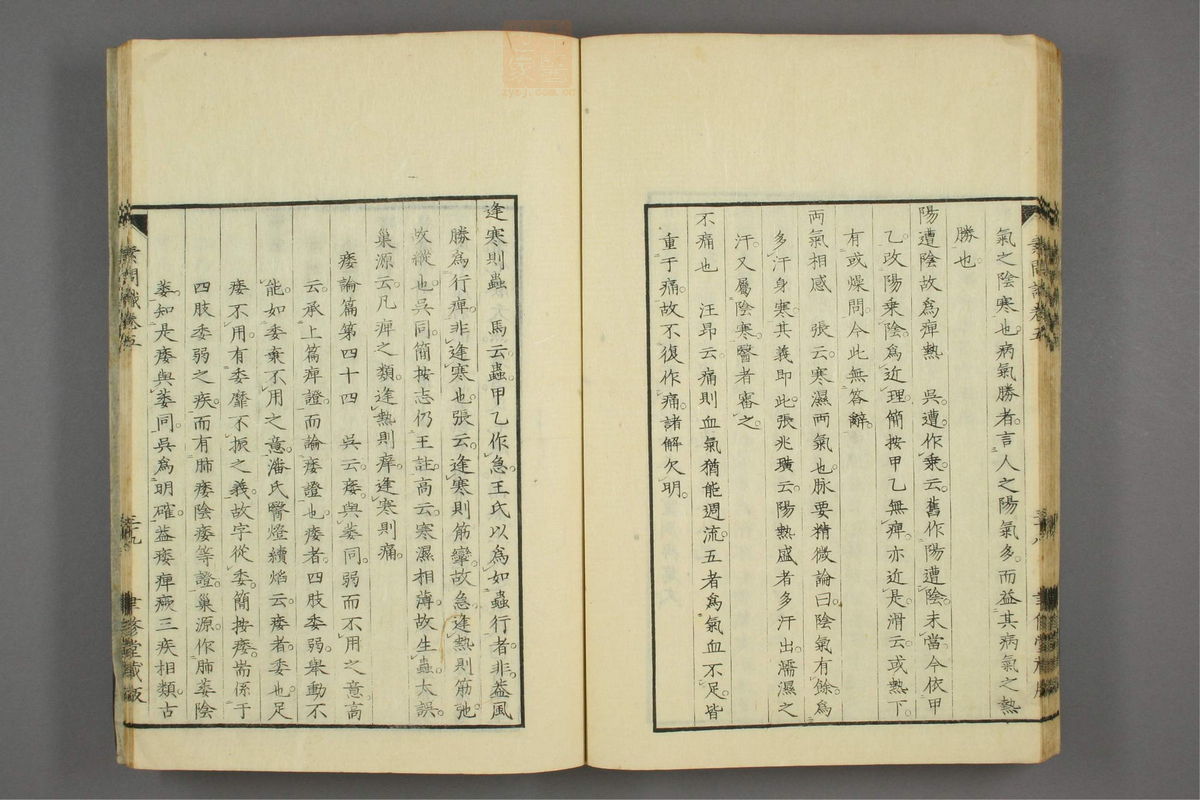 氣之陰寒也病氣勝者言人之陽氣多而益其病氣之熱
勝也
陽遭陰故爲痺熱 吳遭作乘云舊作陽遭陰未當今依甲
乙改陽乘陰爲近理簡按甲乙無痺亦近是滑云或熱下
有或燥問今此無答辭
兩氣相感 張云寒濕兩氣也脉要精微論曰陰氣有餘爲
多汗身寒其義即此張兆璜云陽熱盛者多汗出濡濕之
汗又屬陰寒醫者審之
不痛也 汪昂云痛則血氣猶能週流五者爲氣血不足皆
重于痛故不復作痛諸解欠明
逢寒則蟲 馬云蟲甲乙作急王氏以爲如蟲行者非蓋風
勝爲行痺非逢寒也張云逢寒則筋攣故急逢熱則筋弛
故縱也吳同簡按志仍王註高云寒濕相薄故生蟲太誤
巢源云凡痺之類逢熱則痒逢寒則痛
痿論篇第四十四 吳云痿與萎同弱而不用之意高
云承上篇痺證而論痿證也痿者四肢委弱舉動不
能如委棄不用之意潘氏醫燈續焰云痿者委也足
痿不用有委靡不振之義故字從委簡按痿耑係于
四肢委弱之疾而有肺痿陰痿等證巢源作肺萎陰
萎知是痿與萎同吳爲明確益痿痺痾三疾相類古
素問識卷五
三十九
聿修堂藏版